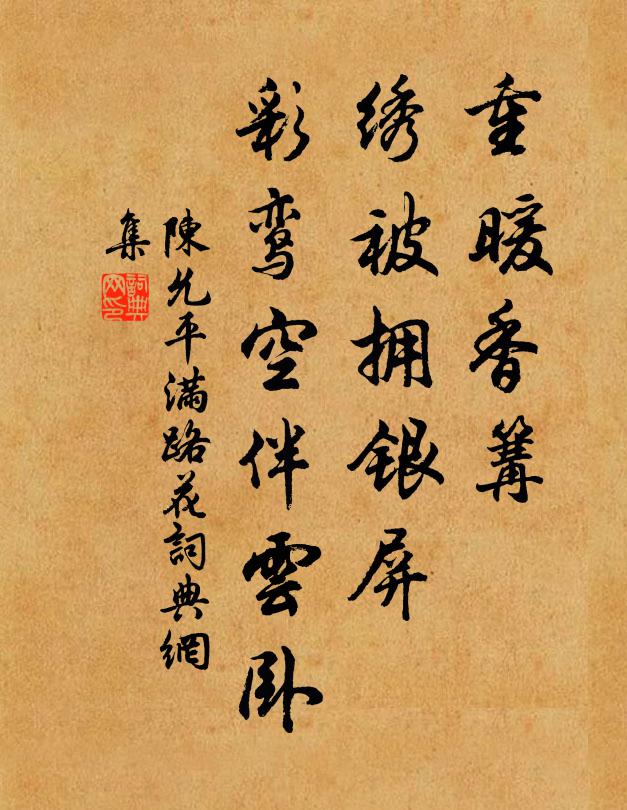 重暖香篝
绣被拥银屏
彩鸾空伴雲卧
陳允平满路花詞典網
集
詞典
网印